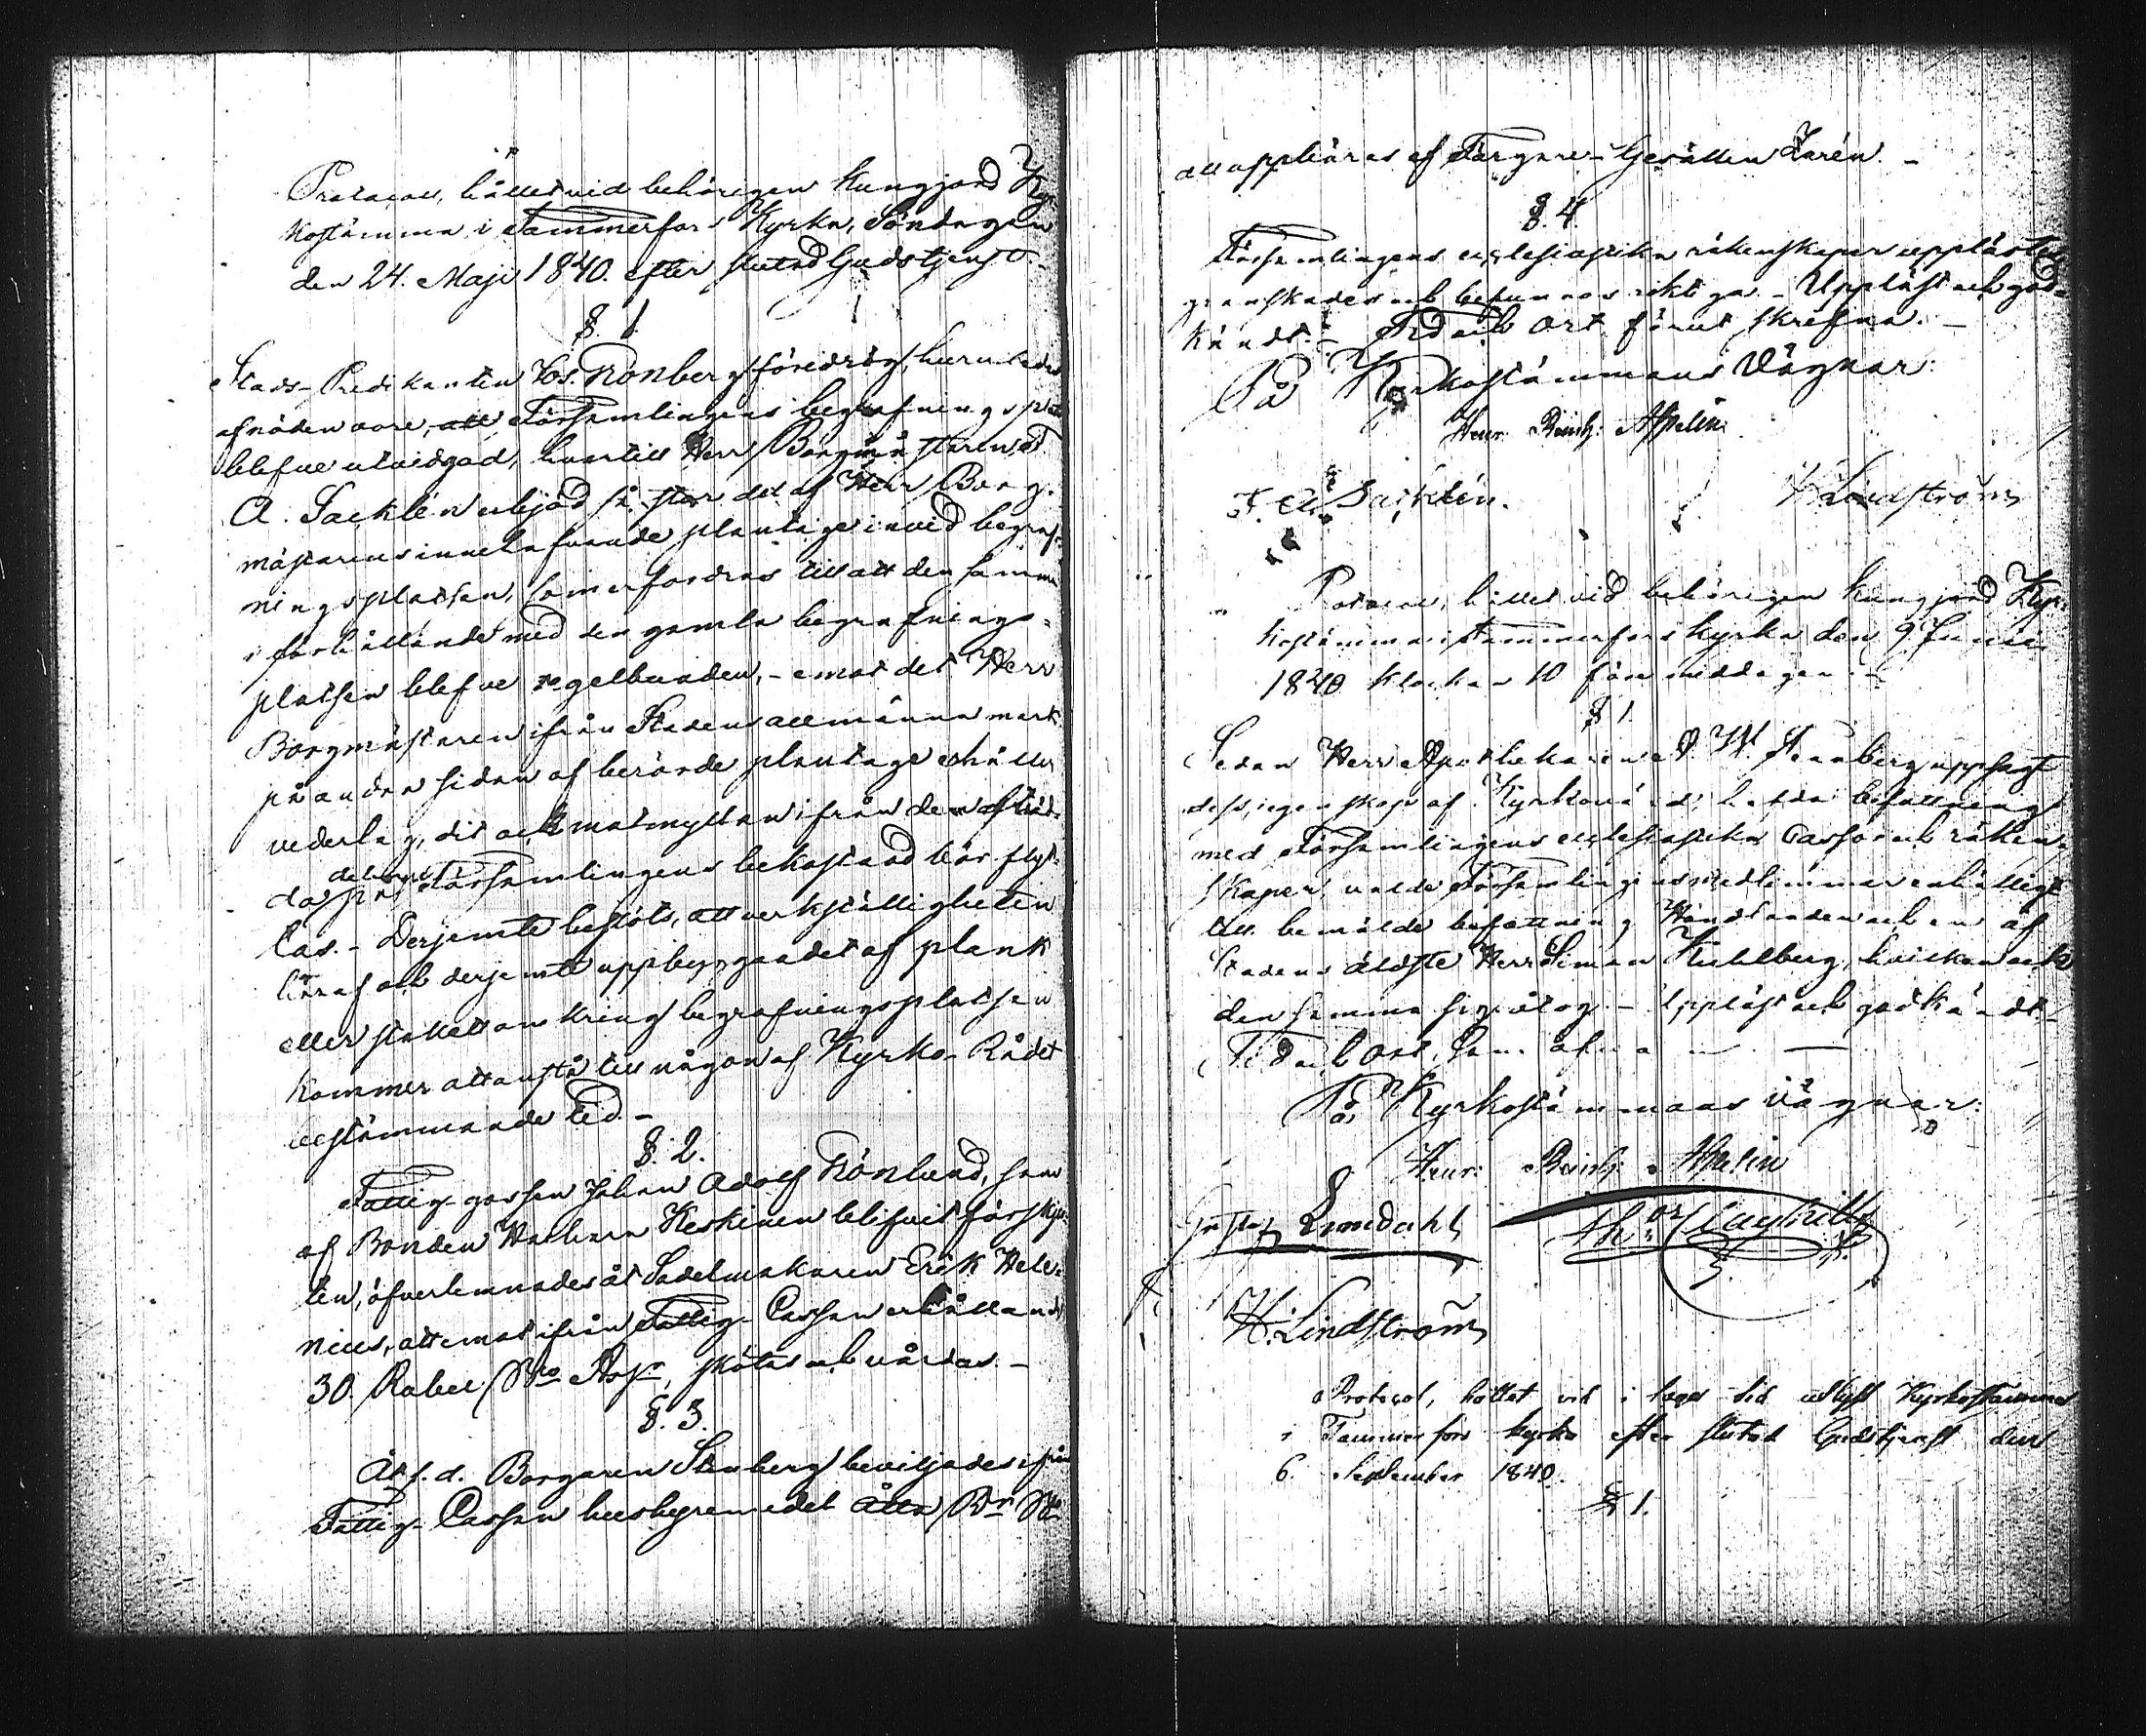 Protocoll, hållet vid behörigen kungjord Kyr-
kostämma i Tammerfors Kyrka, Söndagen
den 24. Maji 1840. efter slutad Gudstjenst.
§. 1
Stads-Predikanten Cronberg föredrog, huruledes
af nöden vore, att Församlingens begrafningsplats
blefve utvidgad, hvartill Herr Borgmästaren
A. Sacklén erbjöd så stor del af Herr Borg-
mästarens innehafvande plantage invid begraf-
ningsplatsen, som erfordras till att densamma
i förhållande med den gamla begrafnings-
platsen blefve regelbunden, - emot det Herr
Borgmästaren ifrån Staden allmänna mark
på andra sidan af berörde plantage erhåller
vederlag, dit ock ifrån den
das på Församlingens bekostnad bör flyt-
tas. - Derjemte beslöts, att verkställigheten
häraf och derjemte uppbyggandet af plank
eller staket omkring begrafningsplatsen
kommer att anstå till någon af Kyrko-Rådet
bestämmande tid. -
§. 2.
Fattig-gossen Johan Adolf Grönlund, som
af Bonden Keskinen blifvit förskju-
ten, öfverlemnades åt Sadelmakaren Erik Hele-
nius, att emot ifrån Fattig-Cassan erhållande
30. Rubel B:co Ass:r, skötas och vårdas. -
§. 3.
Åt f. d. Borgaren Stenberg beviljades ifrån
Fattig-Cassan hushyremedel åtta
att uppbäras af Färgare-Gesällen Zarén. -
§. 4.
Församlingens ecclesiastika räkenskaper upplästes,
granskades och befunnos riktiga. - Uppläst och god-
kändt. - Tid och Ort förut skrefna. -
På Kyrkostämmans Vägnar:
Henr. Reinh: Aspelin
F. A. Sacklén.
H. Lindström
Protocoll, hållet vid behörigen kungjord Kyr-
kostämma i Tammerfors kyrka den 9 Junii
1840 klockan 10 före middagen. -
§ 1.
Sedan Herr Apothekaren A. W. Stenberg uppsagt
dess, i egenskap af Kyrkovärd, hafda befattning
med Församlingens ecclesiastika Cassor och räken-
skaper, valde Församlingens medlemmar enhälligt
till bemälde befattning Handlanden och en af
Stadens Äldste Herr Simon Kuhlberg, hvilken ock
densamma sig åtog. - Uppläst och godkändt. -
Tid och Ort, som ofvan. -
På Kyrkostämmans Vägnar:
Henr: Reinh: Aspelin
Gustaf Limdahl
H. Lindström
Protocol, hållet vid i laga tid utlyst Kyrkostämma
i Tammerfors kyrka efter slutad Gudstjenst den
6. September 1840.
§ 1.